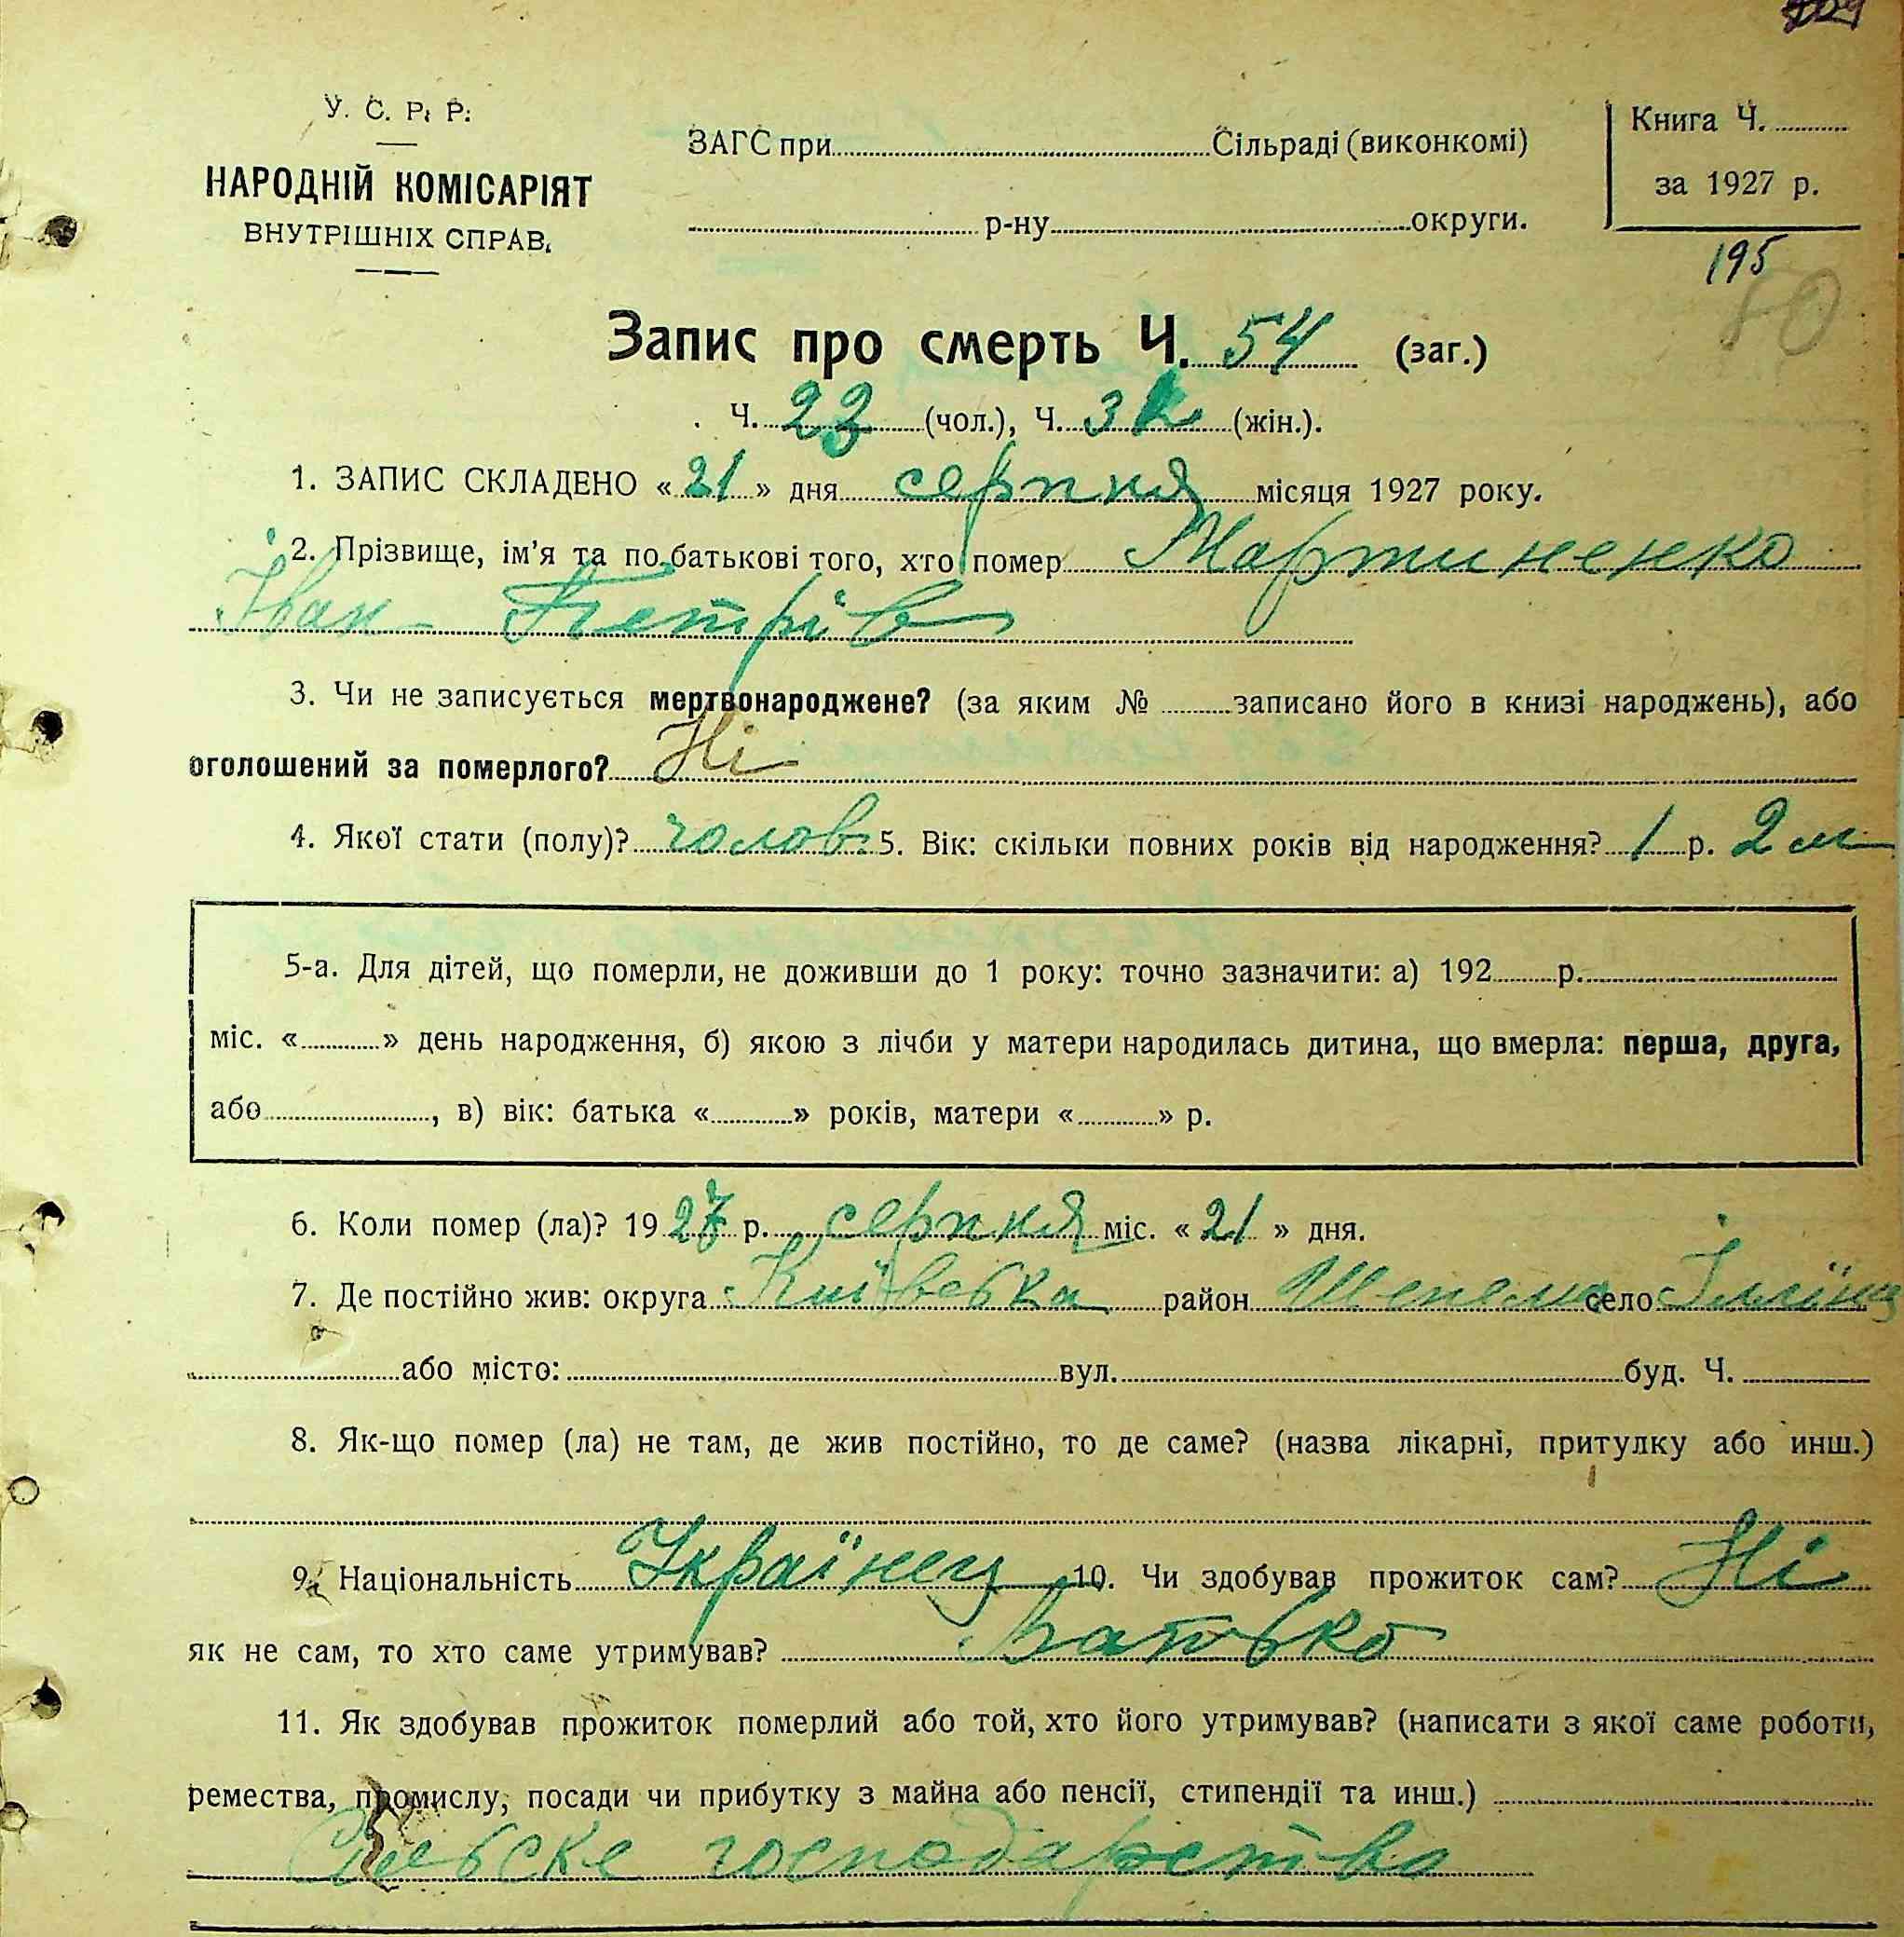 У. С. Р. Р.
НАРОДНІЙ КОМІСАРІЯТ
ВНУТРІШНІХ СПРАВ.
ЗАГС при Сільраді (виконкомі)
р-ну округи.
Книга Ч.
за 1927 р.
195
50
Запис про смерть Ч. 54 (заг.)
Ч. 23 (чол.), Ч. (жін.).
1. ЗАПИС СКЛАДЕНО «21» дня серпня місяця 1927 року.
2. Прізвище, ім'я та по батькові того, хто помер Мартиненко
Іван Петрів
3. Чи не записується мертвонароджене? (за яким № записано його в книзі народжень), або
оголошений за померлого? Ні
4. Якої стати (полу)? чолов. 5. Вік: скільки повних років від народження? 1 р. 2 м
5-а. Для дітей, що померли, не доживши до 1 року: точно зазначити: а) 192 р.
міс. « » день народження, б) якою з лічби у матери народилась дитина, що вмерла: перша, друга,
або , в) вік: батька « » років, матери « » р.
6. Коли помер (ла)? 1927 р. серпня міс. «21» дня.
7. Де постійно жив: округа Київська район село
або місто: вул. буд. Ч.
8. Як-що помер (ла) не там, де жив постійно, то де саме? (назва лікарні, притулку або инш.)
9. Національність Українец 10. Чи здобував прожиток сам? Ні
як не сам, то хто саме утримував? Батько
11. Як здобував прожиток померлий або той, хто його утримував? (написати з якої саме роботи,
ремества, промислу, посади чи прибутку з майна або пенсії, стипендії та инш.)
господарство